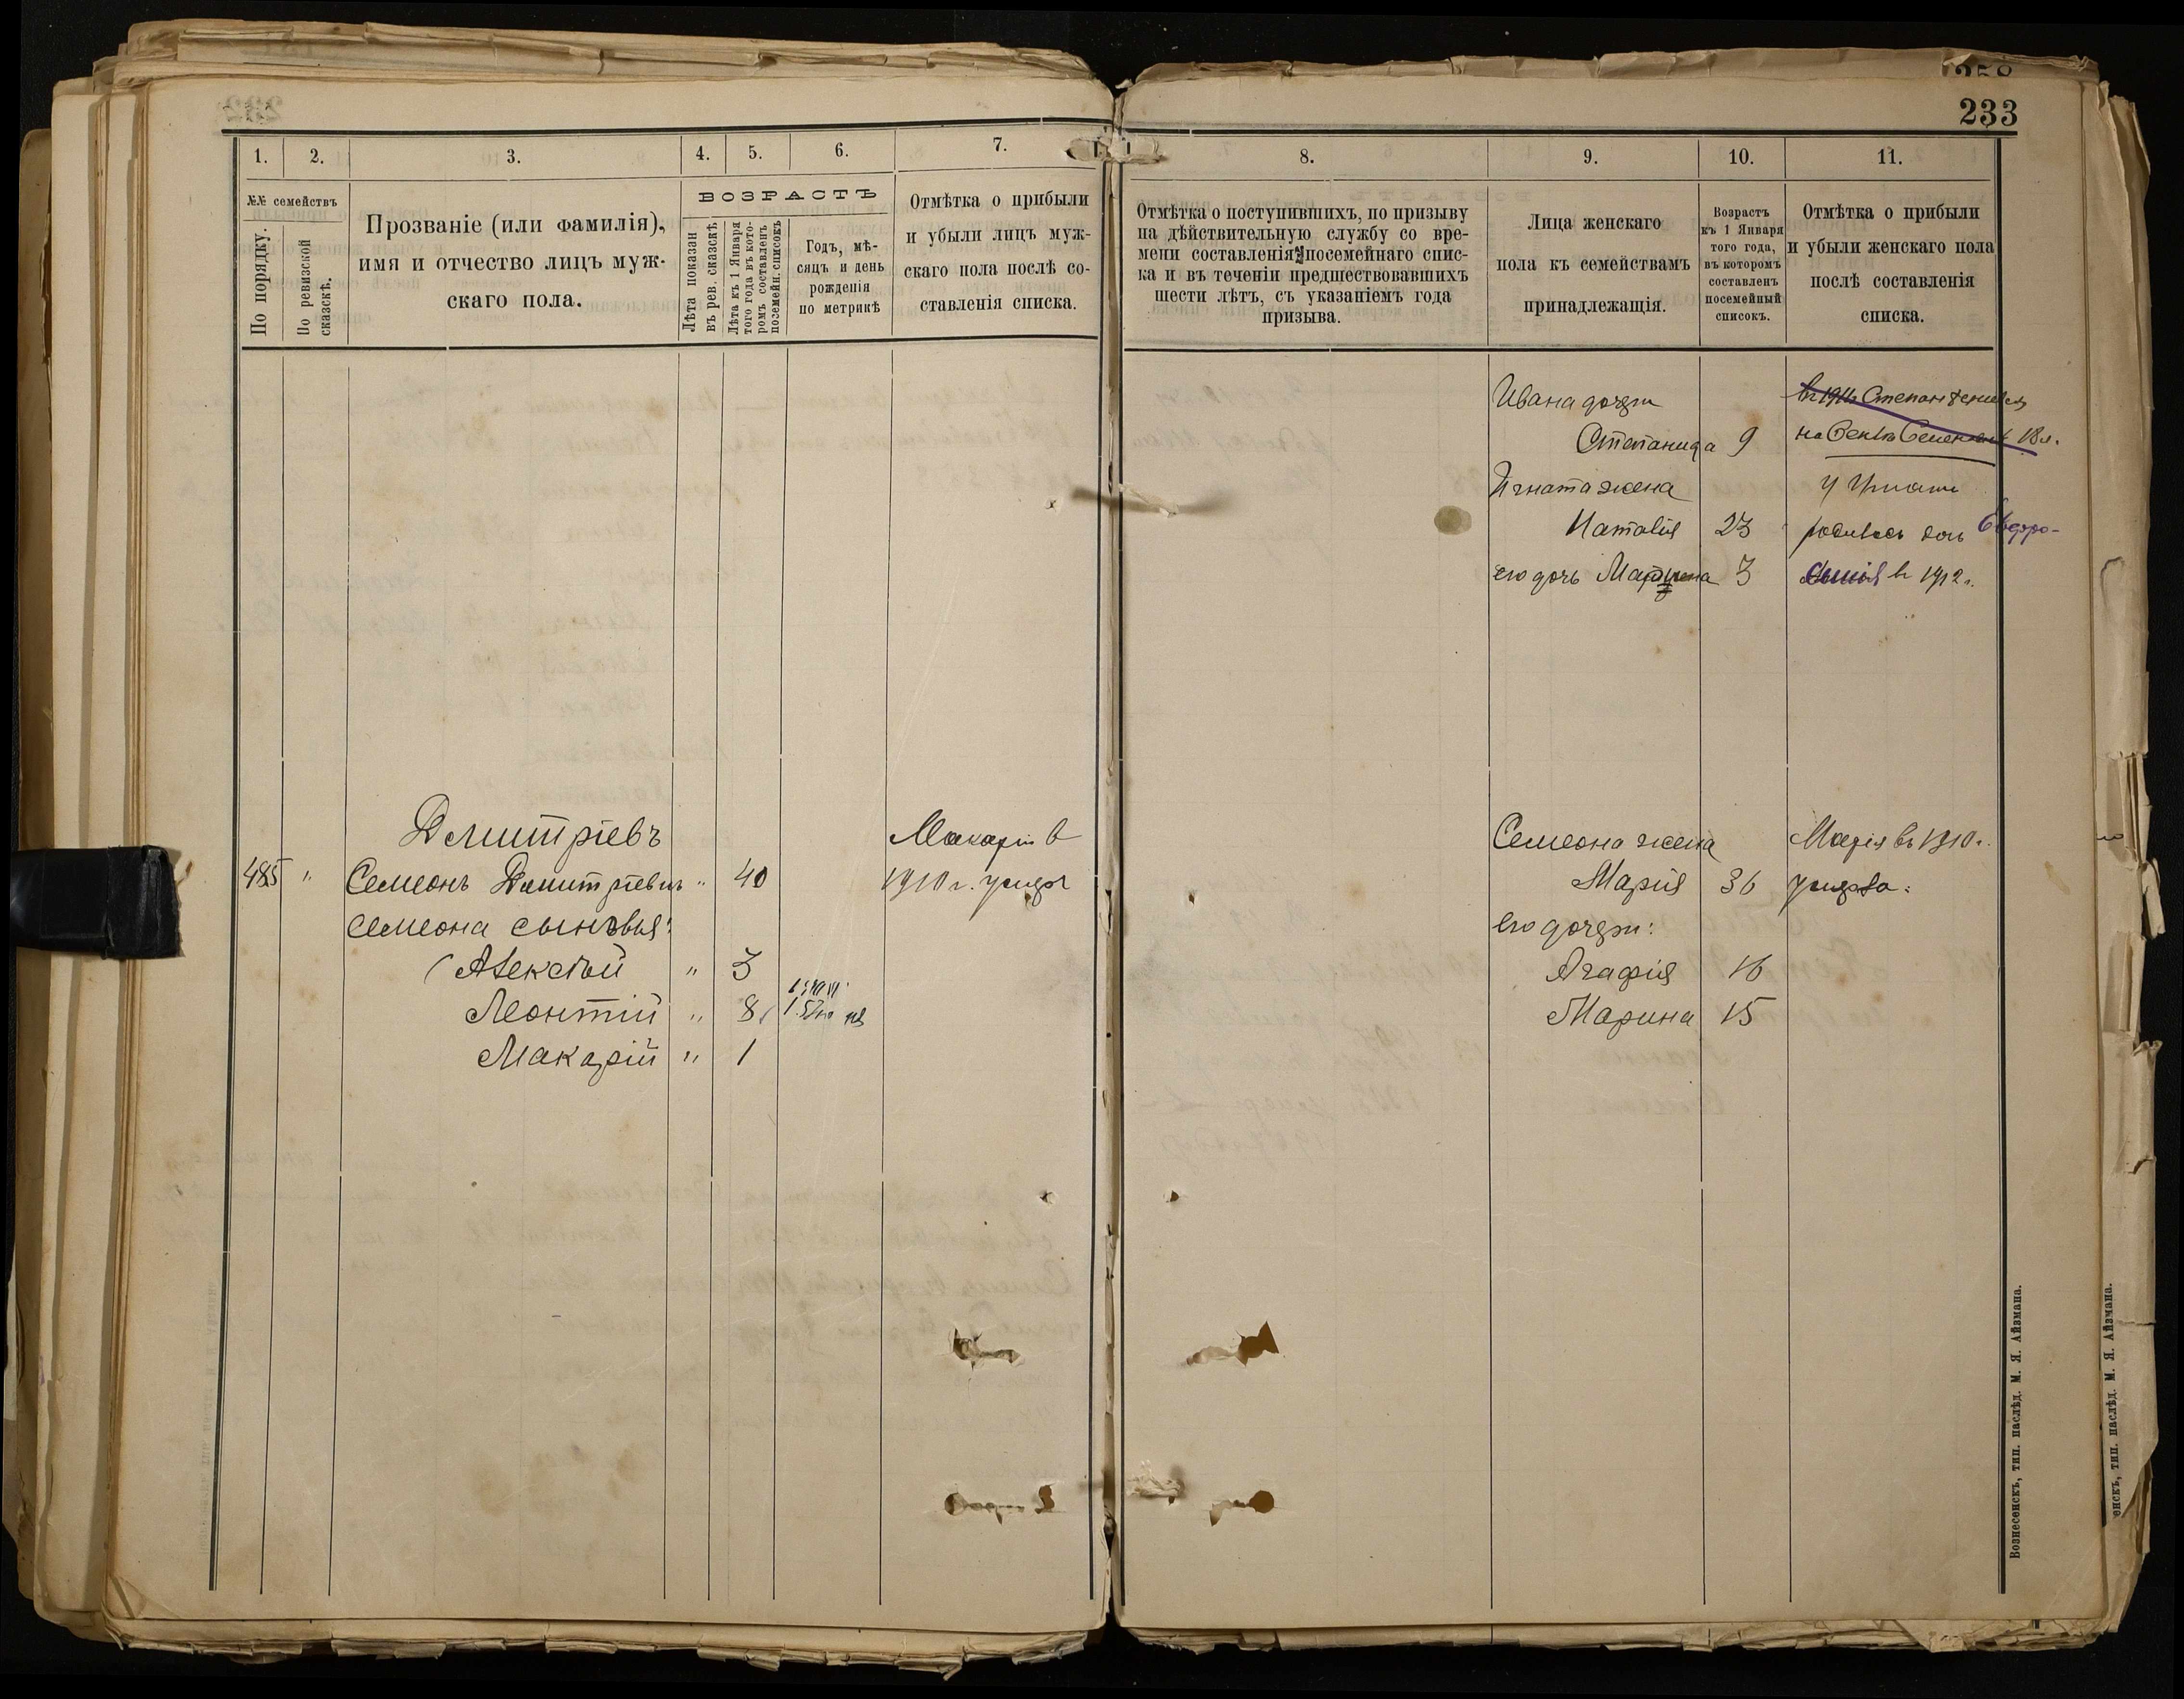 233
1.
2.
3.
4.
5.
6.
7.
№№ семействъ
По порядку.
По ревизской
сказскѣ.
Прозваніе (или фамилія),
имя и отчество лицъ муж-
скаго пола.
ВОЗРАСТЪ
Лѣта показан
въ рев. сказскѣ
Лѣта къ 1 Января
того года въ кото-
ромъ составленъ
посемейн. списокъ
Годъ, мѣ-
сяцъ и день
рожденія
по метрикѣ
Отмѣтка о прибыли
и убыли лицъ муж-
скаго пола послѣ со-
ставленія списка.
8.
9.
10.
11.
Отмѣтка о поступившихъ, по призыву
на дѣйствительную службу со вре-
мени составленія посемейнаго спис-
ка и въ теченіи предшествовавшихъ
шести лѣтъ, съ указаніемъ года
призыва.
Лица женскаго
пола къ семействамъ
принадлежащія.
Возрастъ
къ 1 Января
того года,
въ которомъ
составленъ
посемейный
списокъ.
Отмѣтка о прибыли
и убыли женскаго пола
послѣ составленія
списка.
Дмитріевъ
Макарій в
485 " Семеонъ Дмитріевичъ " 40 1910 г. умеръ
Семеона сыновья:
Алексѣй " 3
Леонтій " 8
Макарій " 1
Ивана дочери
Степанида 9 18 л.
Игната жена
Наталія 23 родилась дочь
его дочь 3 в 1912 г.
Семеона жена Марія въ 1910 г.
Марія 36 умерла.
его дочери:
Агафія 16
Марина 15
Вознесенскъ, тип. наслѣд. М. Я. Айзмана.
енскъ, тип. наслѣд. М. Я. Айзмана.